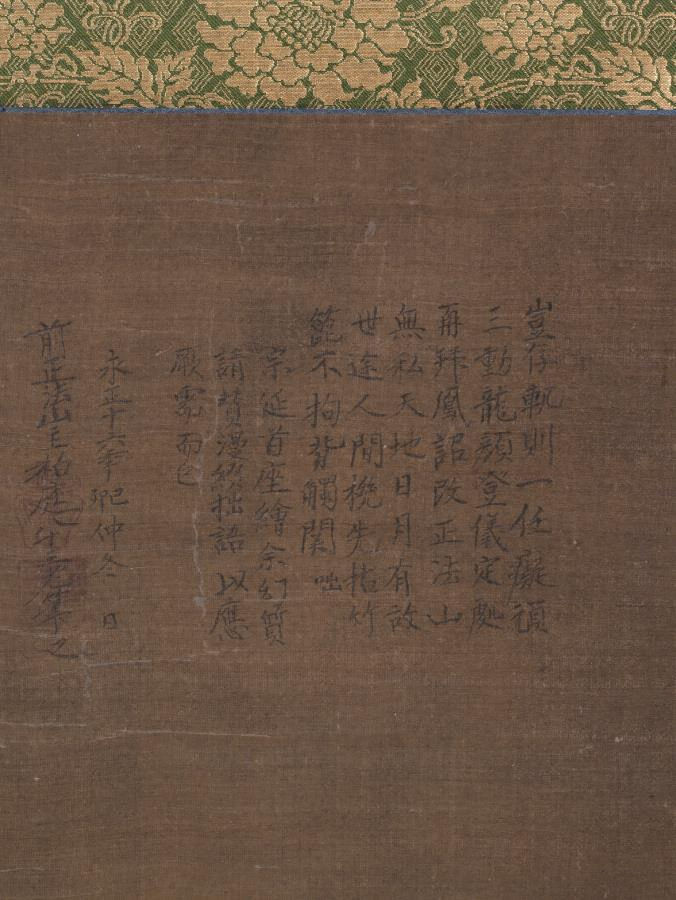 豈存軌則一任癡頑
三動龍顔登儀定處
再拜鳳詔改正法山
無私天地日月有故
世途人間機先指竹
篦不拘背觸関咄
宗延首座繪余幻質
請賛漫綴拙語以應
厥需而已
永正十六年卯仲冬日
前正法山主柏庭之